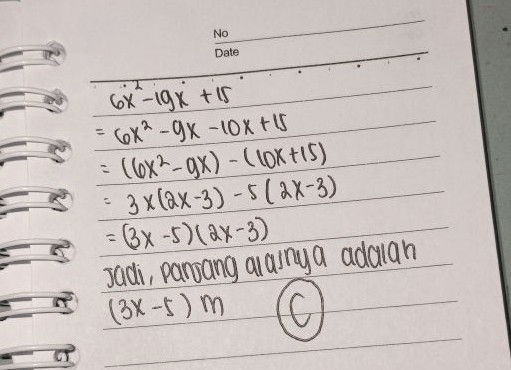 No
Date
6x² - 19x + 15
= 6x² - 9x - 10x + 15
= (6x² - 9x) - (10x + 15)
= 3x(2x - 3) - 5(2x - 3)
= (3x - 5)(2x - 3)
Jadi, panjang alasnya adalah
(3x - 5) m Ⓒ